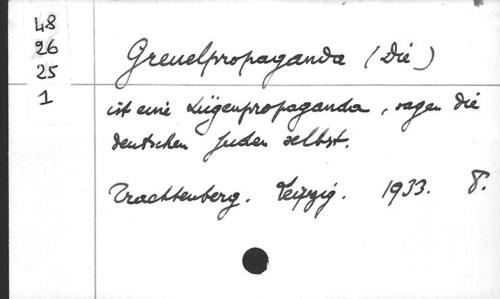 48
26
25
1
Greuelpropaganda (Die)
ist eine Lügenpropaganda, sagen die
deutschen Juden selbst.
Trachtenberg. Leipzig. 1933. 8.